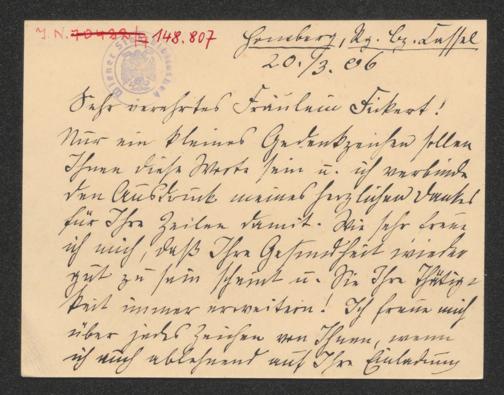 J.N. 70422/4 148.807
Homberg, Rg. Bz. Cassel
20./3. 06
Sehr verehrtes Fräulein Fickert!
Nur ein kleines Gedenkzeichen sollen
Ihnen diese Worte sein u. ich verbinde
den Ausdruck meines herzlichen Dankes
für Ihre Zeilen damit. Wie sehr freue
ich mich, daß Ihre Gesundheit wieder
gut zu sein scheint u. Sie Ihre Thätig-
keit immer erweitern! Ich freue mich
über jedes Zeichen von Ihnen, wenn
ich auch ablehnend auf Ihre Einladung